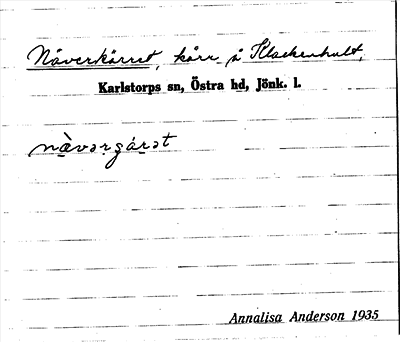 Näverkärret, kärr å Klackenhult,
Karlstorps sn, Östra hd, Jönk. l.
nä̀vərgárət
Annalisa Anderson 1935